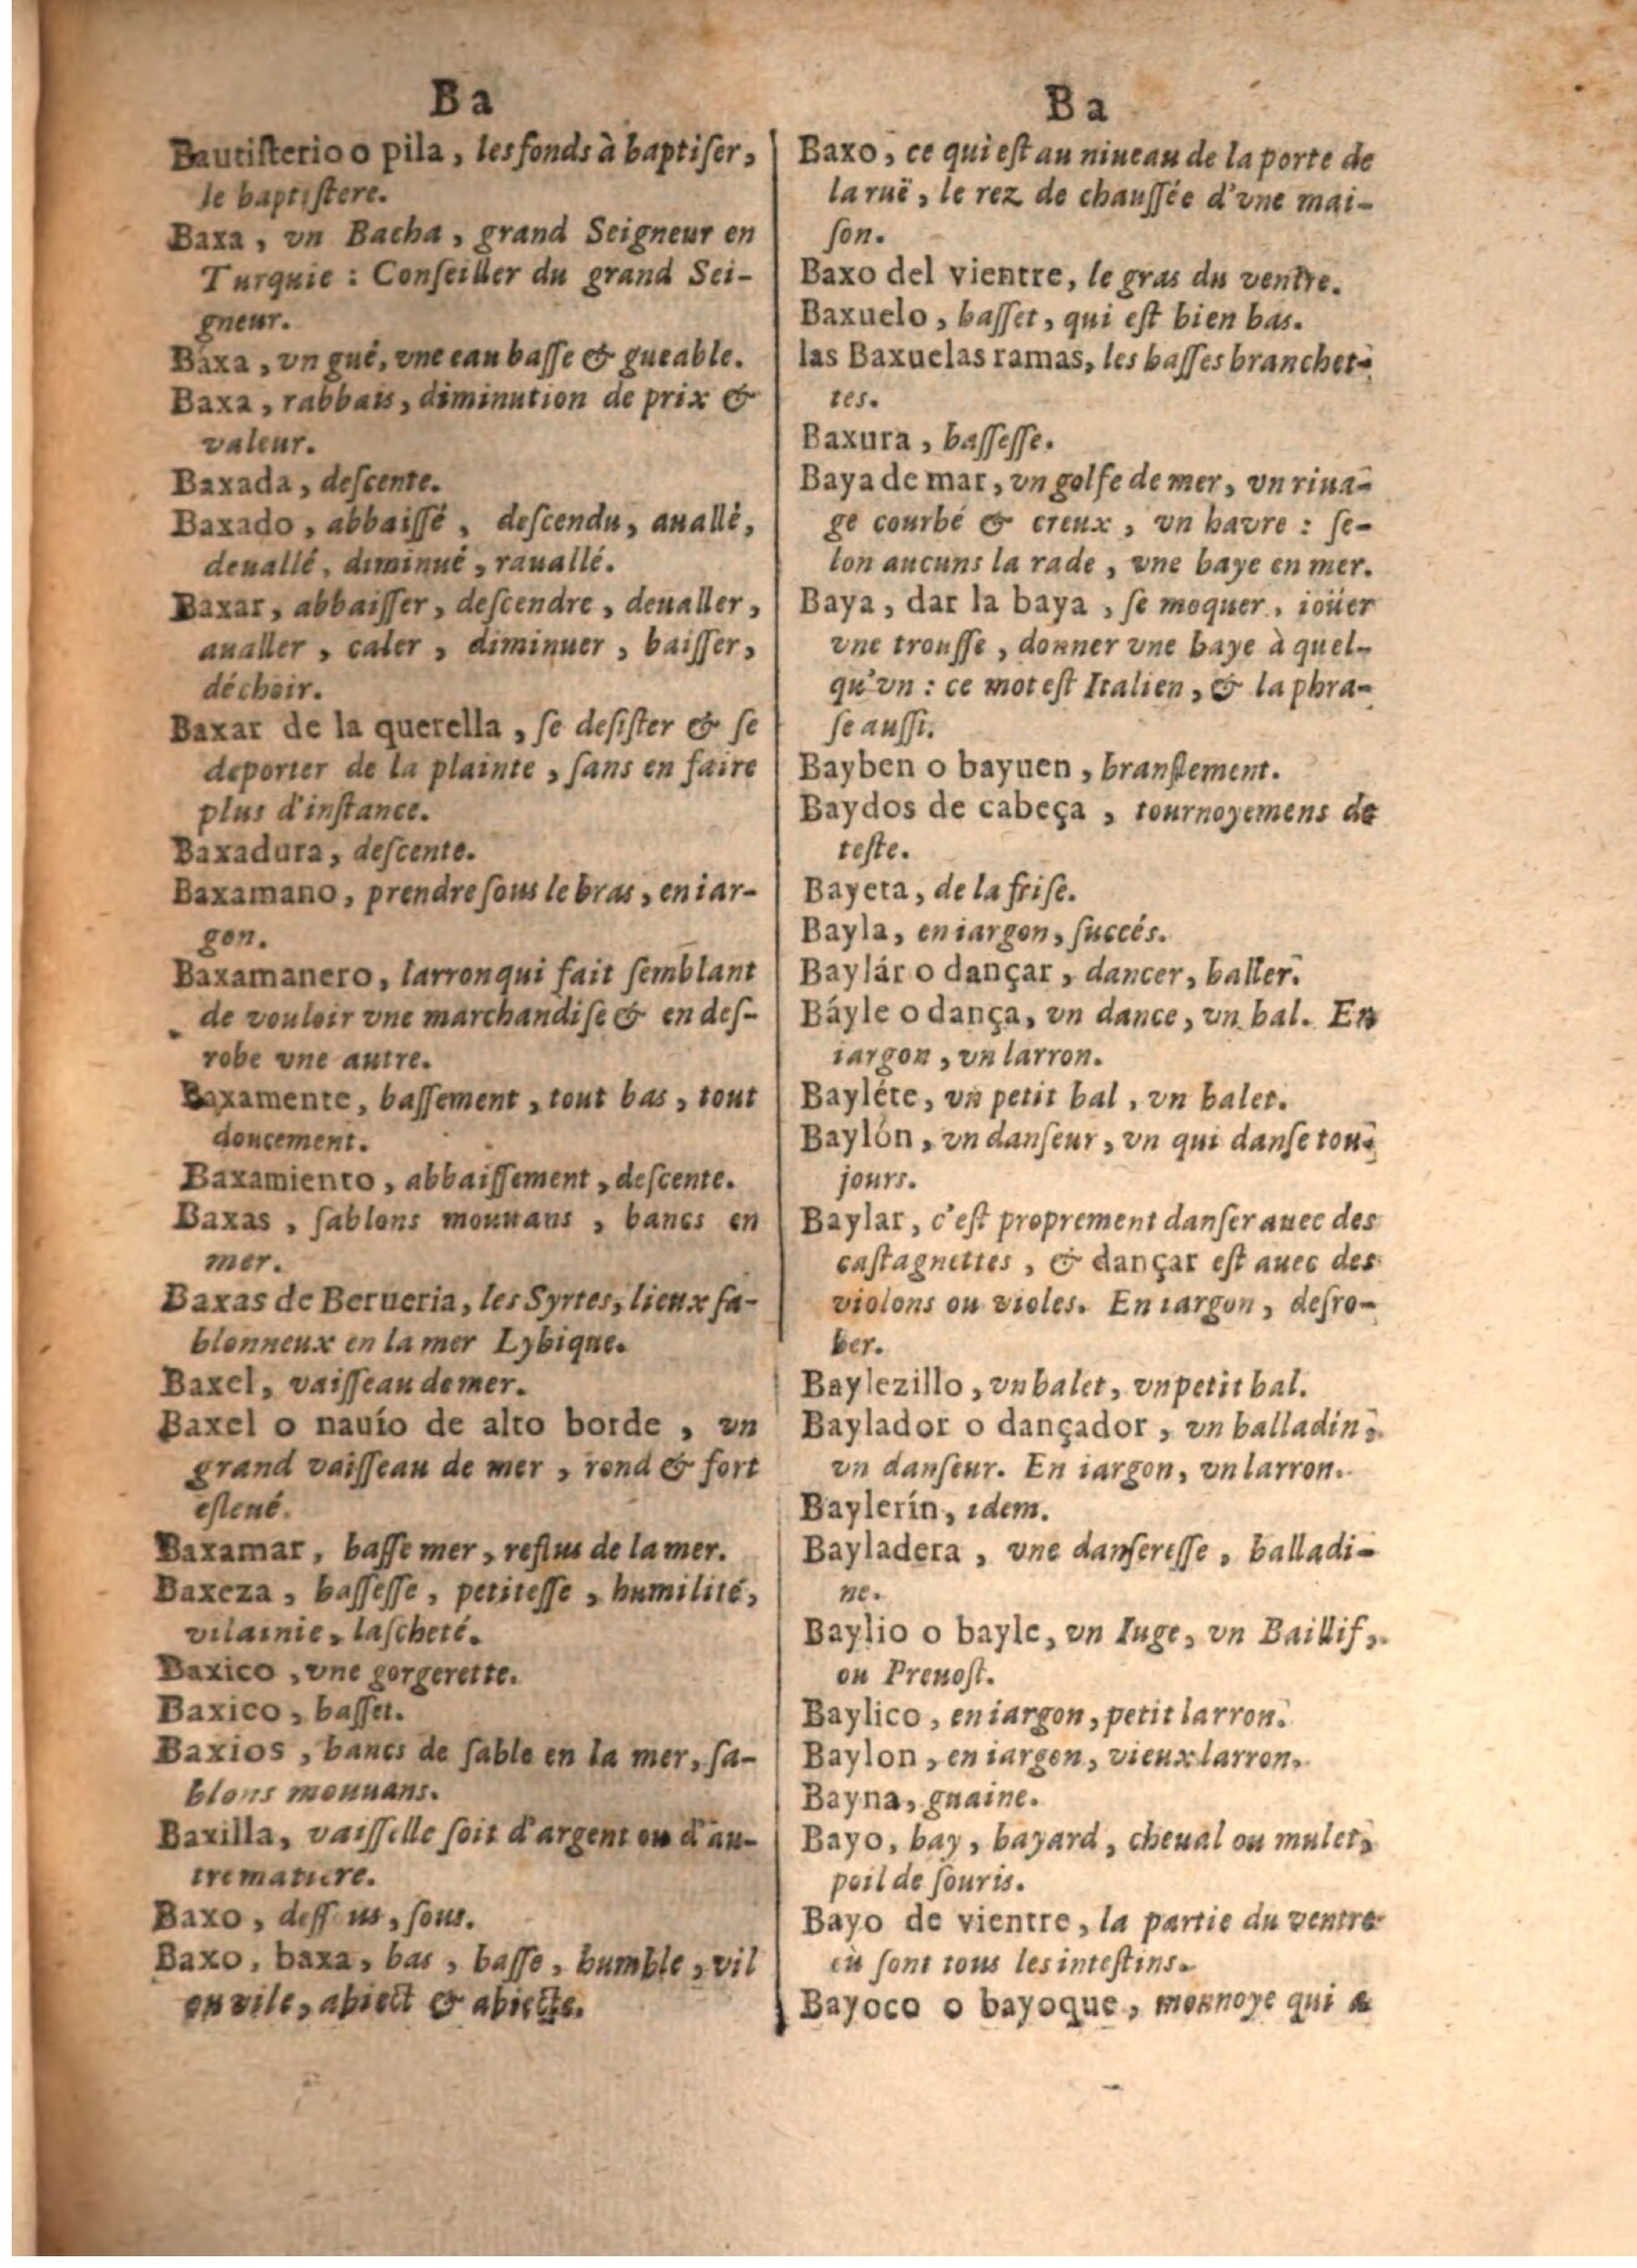 Ba
Bautiſterio o pila, les fonds à baptiſer,
le baptiſtere.
Baxa, vn Bacha, grand Seigneur en
Turquie : Conſeiller du grand Sei-
gneur.
Baxa, vn gué, vne eau baſſe & gueable.
Baxa, rabbais, diminution de prix &
valeur.
Baxada, deſcente.
Baxado, abbaiſſé, deſcendu, auallé,
deuallé, diminué, rauallé.
Baxar, abbaiſſer, deſcendre, deualler,
aualler, caler, diminuer, baiſſer,
déchoir.
Baxar de la querella, ſe deſiſter & ſe
deporter de la plainte, ſans en faire
plus d'inſtance.
Baxadura, deſcente.
Baxamano, prendre ſous le bras, en iar-
gon.
Baxamanero, larron qui fait ſemblant
de vouloir vne marchandiſe & en deſ-
robe vne autre.
Baxamente, baſſement, tout bas, tout
doucement.
Baxamiento, abbaiſſement, deſcente.
Baxas, ſablons mouuans, bancs en
mer.
Baxas de Berueria, les Syrtes, lieux ſa-
blonneux en la mer Lybique.
Baxel, vaiſſeau de mer.
Baxel o nauío de alto borde, vn
grand vaiſſeau de mer, rond & fort
eſleué.
Baxamar, baſſe mer, reflus de la mer.
Baxeza, baſſeſſe, petiteſſe, humilité,
vilainie, laſcheté.
Baxico, vne gorgerette.
Baxico, baſſet.
Baxios, bancs de ſable en la mer, ſa-
blons mouuans.
Baxilla, vaiſſelle ſoit d'argent ou d'au-
tre matiere.
Baxo, deſſous, ſous.
Baxo, baxa, bas, baſſe, humble, vil
ou vile, abiect & abiecte.
Ba
Baxo, ce qui eſt au niueau de la porte de
la ruë, le rez de chauſſée d'vne mai-
ſon.
Baxo del vientre, le gras du ventre.
Baxuelo, baſſet, qui eſt bien bas.
las Baxuelas ramas, les baſſes branchet-
tes.
Baxura, baſſeſſe.
Baya de mar, vn golfe de mer, vn riua-
ge courbé & creux, vn havre : ſe-
lon aucuns la rade, vne baye en mer.
Baya, dar la baya, ſe moquer, ioüer
vne trouſſe, donner vne baye à quel-
qu'vn : ce mot eſt Italien, & la phra-
ſe auſſi.
Bayben o bayuen, branſlement.
Baydos de cabeça, tournoyemens de
teſte.
Bayeta, de la friſe.
Bayla, en iargon, ſuccés.
Baylár o dançar, dancer, baller.
Báyle o dança, vn dance, vn bal. En
iargon, vn larron.
Bayléte, vn petit bal, vn balet.
Baylón, vn danſeur, vn qui danſe tou-
jours.
Baylar, c'eſt proprement danſer auec des
caſtagnettes, & dançar eſt auec des
violons ou violes. En iargon, deſro-
ber.
Baylezillo, vn balet, vn petit bal.
Baylador o dançador, vn balladin,
vn danſeur. En iargon, vn larron.
Baylerín, idem.
Bayladera, vne danſereſſe, balladi-
ne.
Baylio o bayle, vn Iuge, vn Baillif,
ou Preuoſt.
Baylico, en iargon, petit larron.
Baylon, en iargon, vieux larron.
Bayna, guaine.
Bayo, bay, bayard, cheual ou mulet,
poil de ſouris.
Bayo de vientre, la partie du ventre
où ſont tous les inteſtins.
Bayoco o bayoque, monnoye qui a